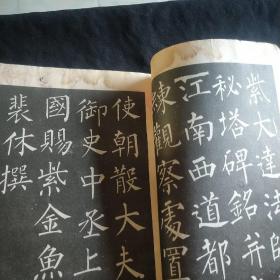 紫大達法師
秘塔碑銘并
江南西道都
練觀察處置
使朝散大夫
御史中丞上
國賜紫金魚
裴休撰